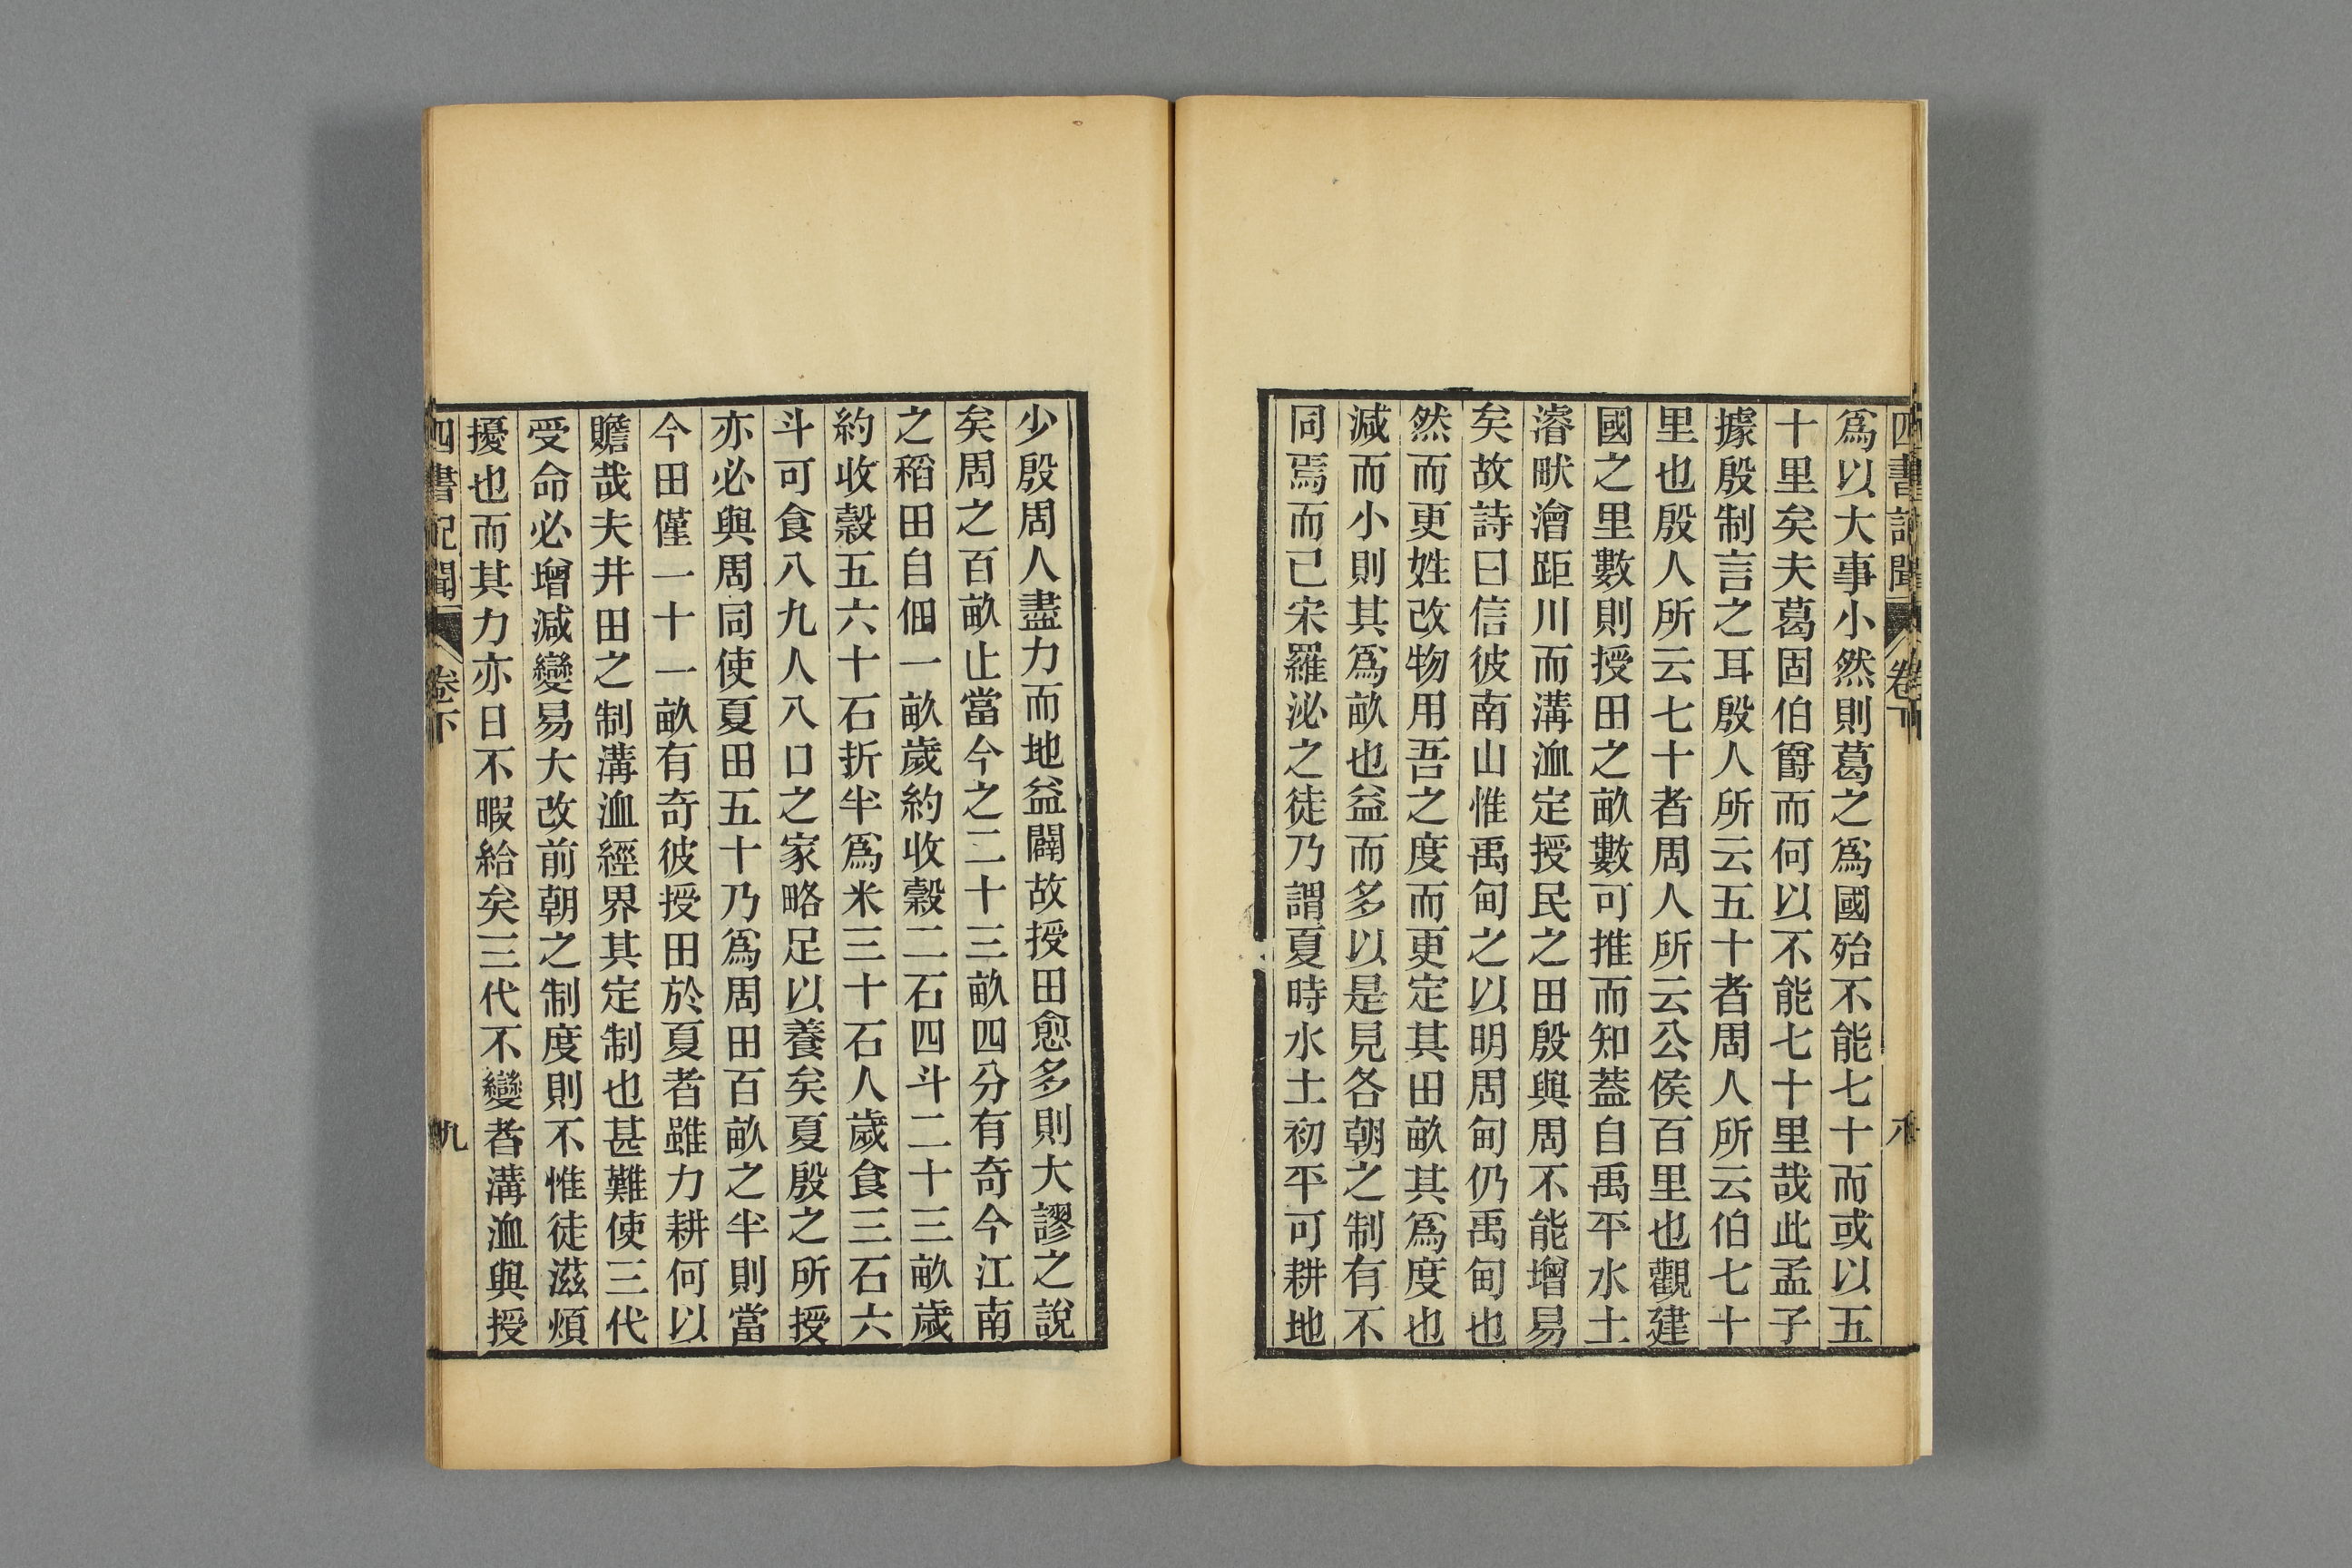 爲以大事小然則葛之爲國殆不能七十而或以五
十里矣夫葛固伯爵而何以不能七十里哉此孟子
據殷制言之耳殷人所云五十者周人所云伯七十
里也殷人所云七十者周人所云公侯百里也觀建
國之里數則授田之畝數可推而知蓋自禹平水土
濬畎澮距川而溝洫定授民之田殷與周不能增易
矣故詩曰信彼南山惟禹甸之以明周甸仍禹甸也
然而更姓改物用吾之度而更定其田畝其爲度也
減而小則其爲畝也益而多以是見各朝之制有不
同焉而已宋羅泌之徒乃謂夏時水土初平可耕地
少殷周人盡力而地益闢故授田愈多則大謬之說
矣周之百畝止當今之二十三畝四分有奇今江南
之稻田自佃一畝歲約收穀二石四斗二十三畝歲
約收穀五六十石折半爲米三十石人歲食三石六
斗可食八九人八口之家略足以養矣夏殷之所授
亦必與周同使夏田五十乃爲周田百畝之半則當
今田僅一十一畝有奇彼授田於夏者雖力耕何以
贍哉夫井田之制溝洫經界其定制也甚難使三代
受命必增減變易大改前朝之制度則不惟徒滋煩
擾也而其力亦日不暇給矣三代不變者溝洫與授
四書記聞 卷下 九